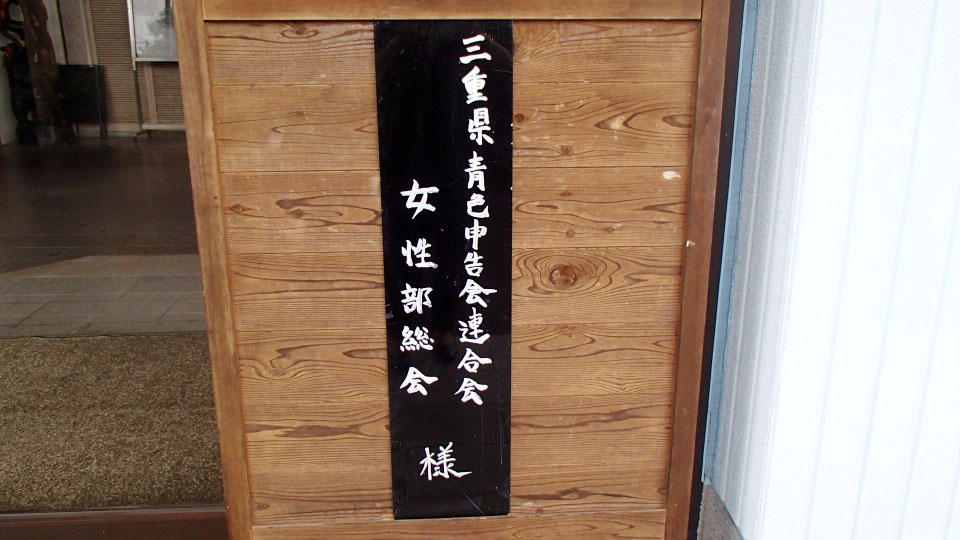 三重県青色申告会連合会
女性部総会
様